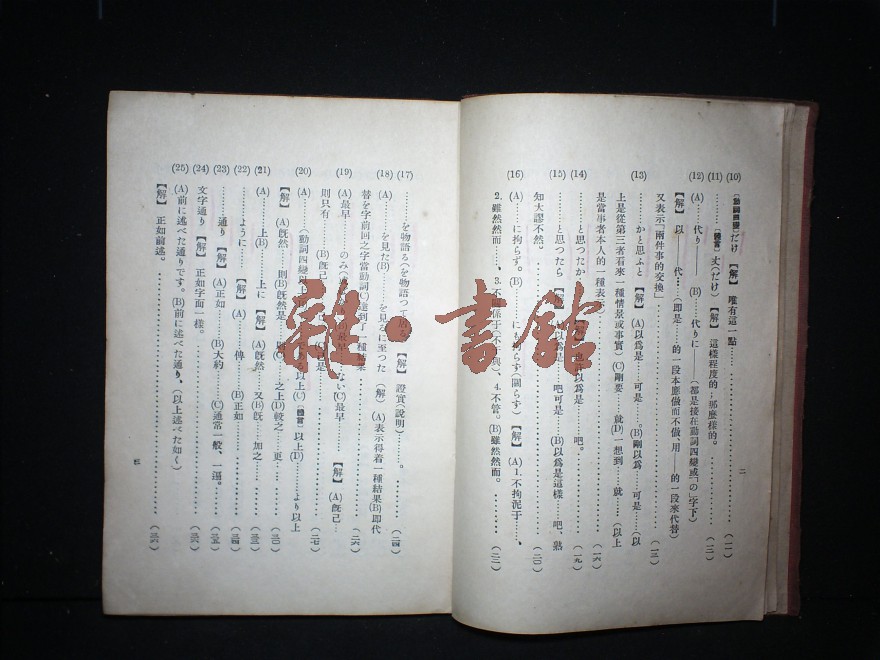 二
(10) 〔動詞四變〕だけ 【解】 唯有這一點………(一一)
(11) ……〔體言〕丈(だけ) 【解】 這樣程度的；那麽樣的。………(一二)
(12) (A) 代り—— (B) 代りに——(都是接在動詞四變或「の」字下)
【解】 以——代…。(即是……的一段本應做而不做、用——的一段來代替)
又表示「兩件事的交換」………(一三)
(13) ……かと思ふと 【解】 (A)以爲是……可是……。(B)剛以爲……可是……(以
上是從第三者看來一種情景或事實) (C)剛要……就(D)一想到……就……(以上
是當事者本人的一種表………(一六)
(14) ……と思つたか 【解】 也許以爲是……吧。………(一九)
(15) ……と思つたら 以爲是……吧可是……(B)以爲是這樣……吧、熟
知大謬不然。………(二〇)
(16) (A)……に拘らず。(B)……にも らず(關らず) 【解】 (A) 1. 不拘泥于……、
2. 雖然然而……、3. 不關係于(不干預)、4. 不管。(B)雖然然而。………(二二)
(17) ……を物語る(を物語つて居る) 【解】 證實(說明)……。………(二四)
(18) (A)……を見た(B)……を見るに至つた (解) (A)表示得着一種結果(B)即代
替を字前回之字當動詞(C)達到了一種結果………(二六)
(19) (A)最早……のみ (B)最早……ない(C)最早…… 【解】 (A)既已…
則只有……(B)既已………(二七)
(20) (A)……(動詞四變以上 である以上(C)〔體言〕以上(D)……より以上
【解】 (A)既然……則(B)既然是……則 之上(D)較之……更………(三〇)
(21) (A)……上(B)……上に 【解】 (A)既然……又(B)既……加之………(三三)
(22) ……ように 【解】 (A)……傳 (B)正如………(三四)
(23) ……通り 【解】 (A)正如……(B)大約……(C)通常一般、一逼。………(三五)
(24) 文字通り 【解】 正如字面一樣。………(三六)
(25) (A)前に述べた通りです。(B)前に述べた通り、(以上述べた如く)
【解】 正如前述。………(三六)
三
雜·書館